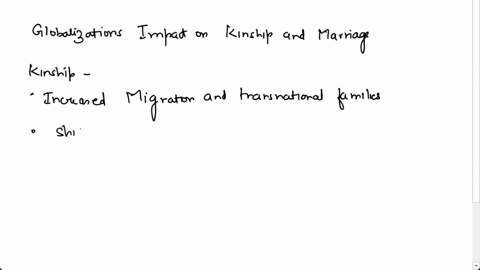 Globalizations Impact on Kinship and Marriage
Kinship -
• Increased Migration and transnational families
• Shi